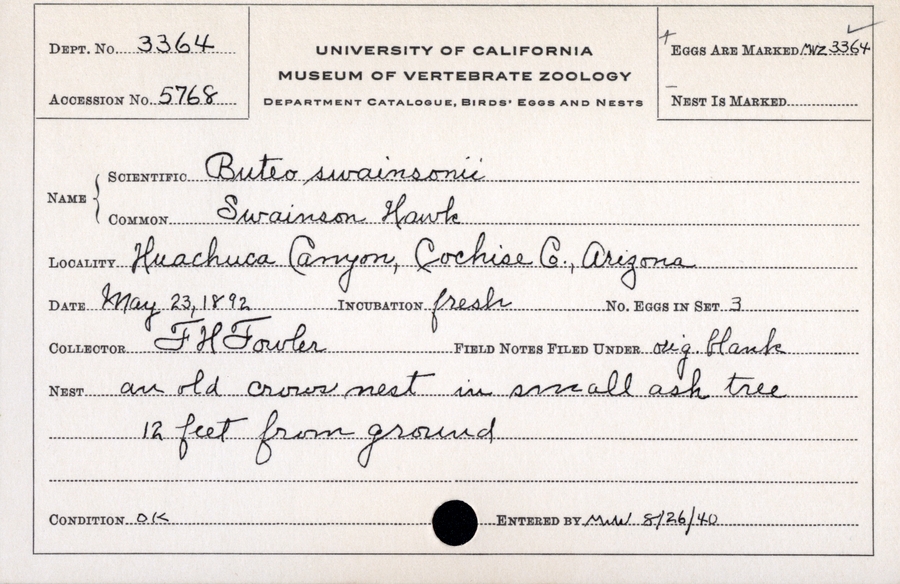 DEPT. No. 3364
ACCESSION No. 5768
UNIVERSITY OF CALIFORNIA
MUSEUM OF VERTEBRATE ZOOLOGY
DEPARTMENT CATALOGUE, BIRDS' EGGS AND NESTS
EGGS ARE MARKED MVZ 3364
NEST IS MARKED
NAME
SCIENTIFIC Buteo swainsonii
COMMON Swainson Hawk
LOCALITY Huachuca Canyon, Cochise Co., Arizona
DATE May 23, 1892 INCUBATION fresh No. EGGS IN SET 3
COLLECTOR F H Fowler FIELD NOTES FILED UNDER orig. blank
NEST an old crows nest in small ash tree
12 feet from ground
CONDITION OK ENTERED BY 8/26/40